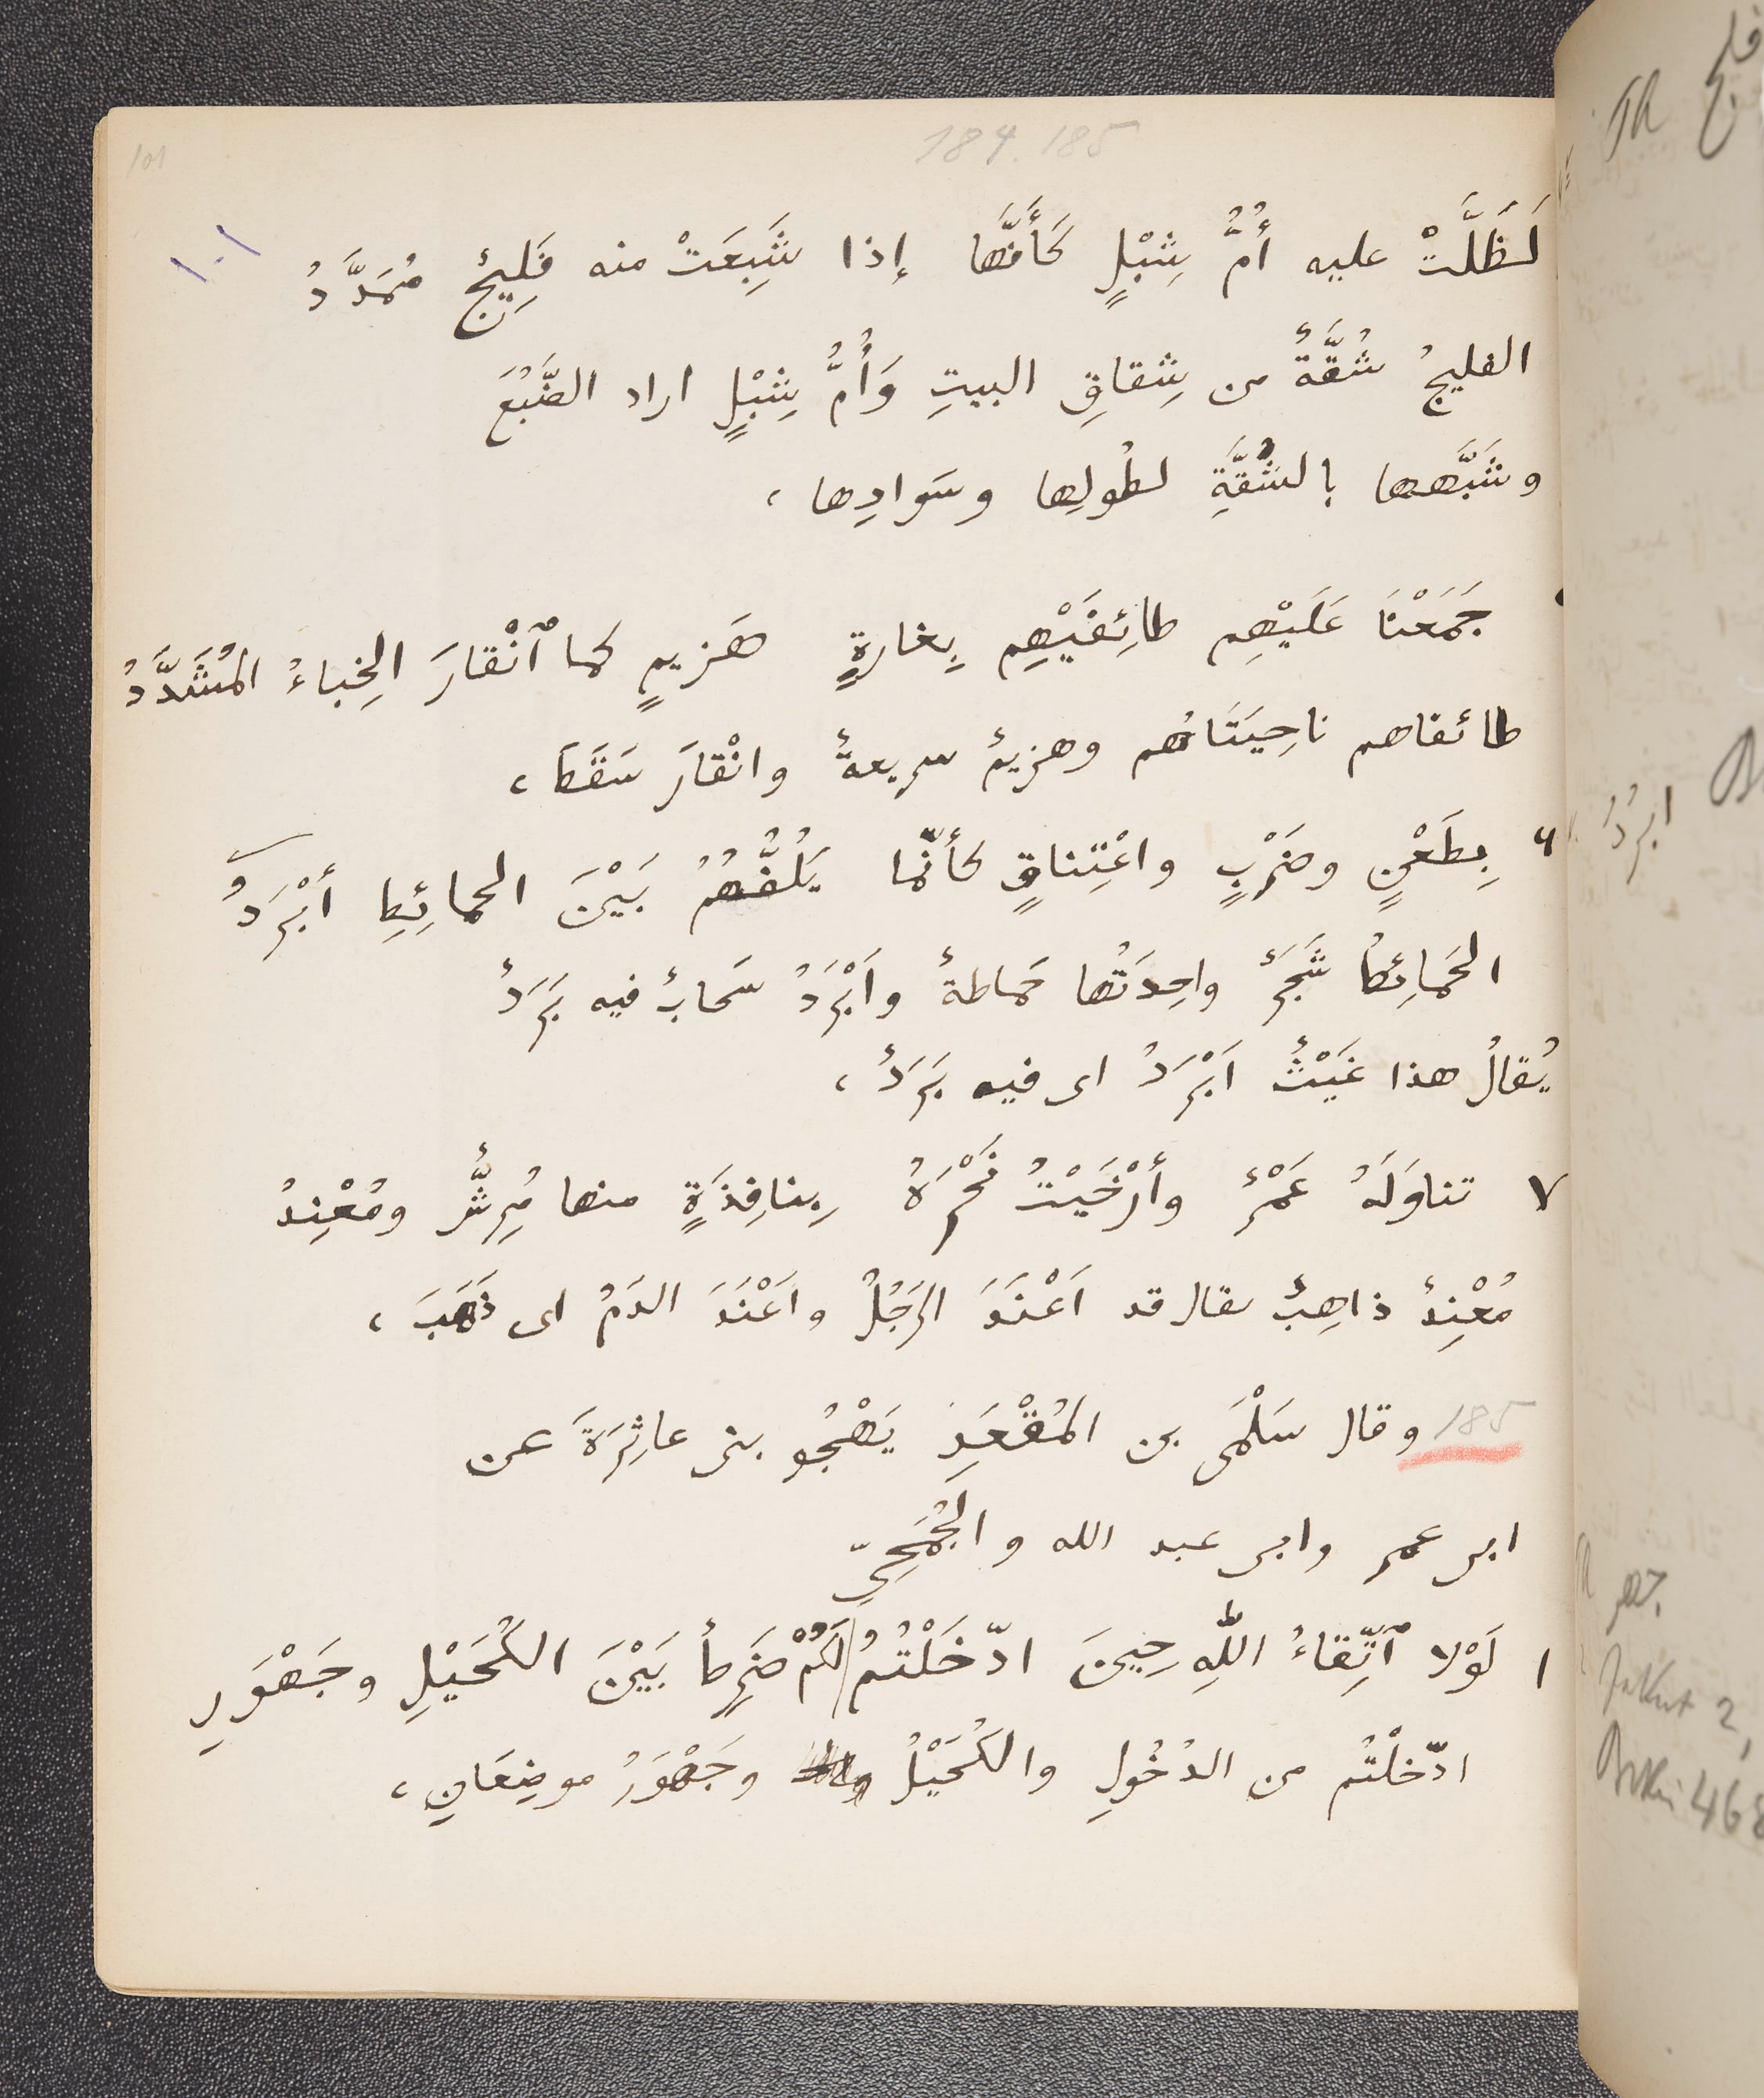 184. 185
101
١٠١
لَظَلَّتْ عليه أُمُّ شِبْلٍ كَأَنَّها إذا شَبِعَتْ منه فَلِيجٌ مُمَدَّدُ
الفليجُ شُقَّةٌ من شِقاقِ البيتِ وَأُمُّ شِبْلٍ اراد الضَّبُعَ
وشَبَّهها بالشُقَّةِ لطُولِها وسَوادِها ،
جَمَعْنَا عَلَيْهِم طائِفَيْهِم بِغارةٍ هَزيمٍ كما ٱنْقارَ الخِباءُ المُشَدَّدُ
طائفاهم ناحِيَتَاهُم وهزيمٌ سريعةٌ وانْقارَ سَقَطَ ،
٦ بِطَعْنٍ وضَرْبٍ واعْتِناقٍ كأنّما يَلُفُّهُمُ بَيْنَ الحمائِطِ أبْرَدُ
الحَمائِطُ شَجَرٌ واحِدَتُها حَماطةٌ وأبْرَدُ سَحابٌ فيه بَرَدٌ
يُقالُ هذا غَيْثٌ اَبْرَدُ اى فيه بَرَدٌ ،
٧ تناوَلَهُ عَمْرٌ وأرْخَيْتُ نَحْرَهُ بِنافِذَةٍ منها مُرِشٌّ ومُعْنِدُ
مُعْنِدٌ ذاهِبٌ يقال قد اَعْنَدَ الرَجُلُ واَعْنَدَ الدَمُ اى ذَهَبَ ،
185 وقال سَلْمَى بن المُقْعَدِ يَهْجُو بنى عاثِرَةَ عن
ابى عمر وابى عبد الله والجُمَحِىّ
١ لَوْلا ٱتِّقاءُ اللّٰهِ حِينَ ادّخَلْتُمُ لَكُمْ ضَرِطٌ بَيْنَ الكُحَيْلِ وجَهْوَرِ
ادّخلْتُم من الدُخُولِ والكُحَيْلُ وجَهْوَرُ موضِعَانِ ،
فلج
TA
ابردُ
TA
جهر
Jakut 2,
Bekri 468